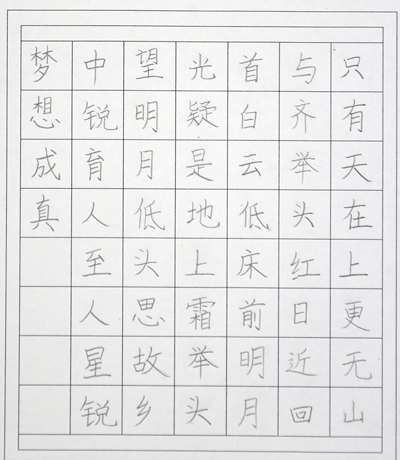 只有天在上更无山
与齐举头红日近回
首白云低床前明月
光疑是地上霜举头
望明月低头思故乡
中锐育人至人星锐
梦想成真